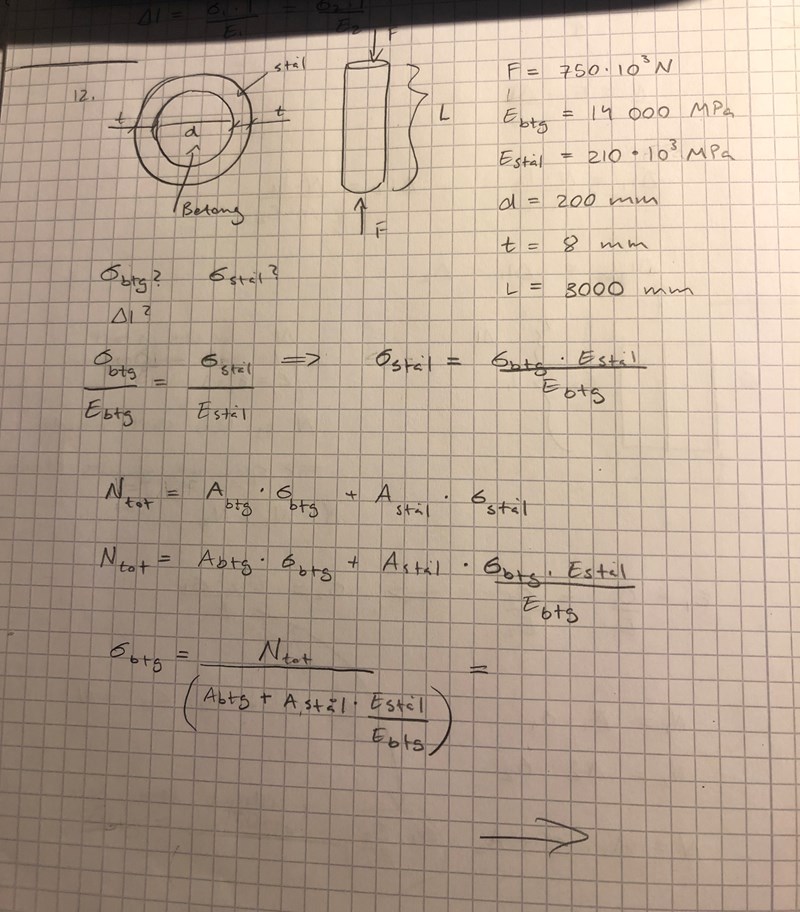 Δl = σ₁·l/E₁ = σ₂·l/E₂
12.
stål
t
d
t
Betong
F
L
F
F = 750·10³ N
E_btg = 14 000 MPa
E_stål = 210·10³ MPa
d = 200 mm
t = 8 mm
L = 3000 mm
σ_btg? σ_stål?
Δl?
σ_btg/E_btg = σ_stål/E_stål ⟹ σ_stål = σ_btg · E_stål/E_btg
N_tot = A_btg · σ_btg + A_stål · σ_stål
N_tot = A_btg · σ_btg + A_stål · σ_btg · E_stål/E_btg
σ_btg = N_tot/(A_btg + A_stål · E_stål/E_btg) =